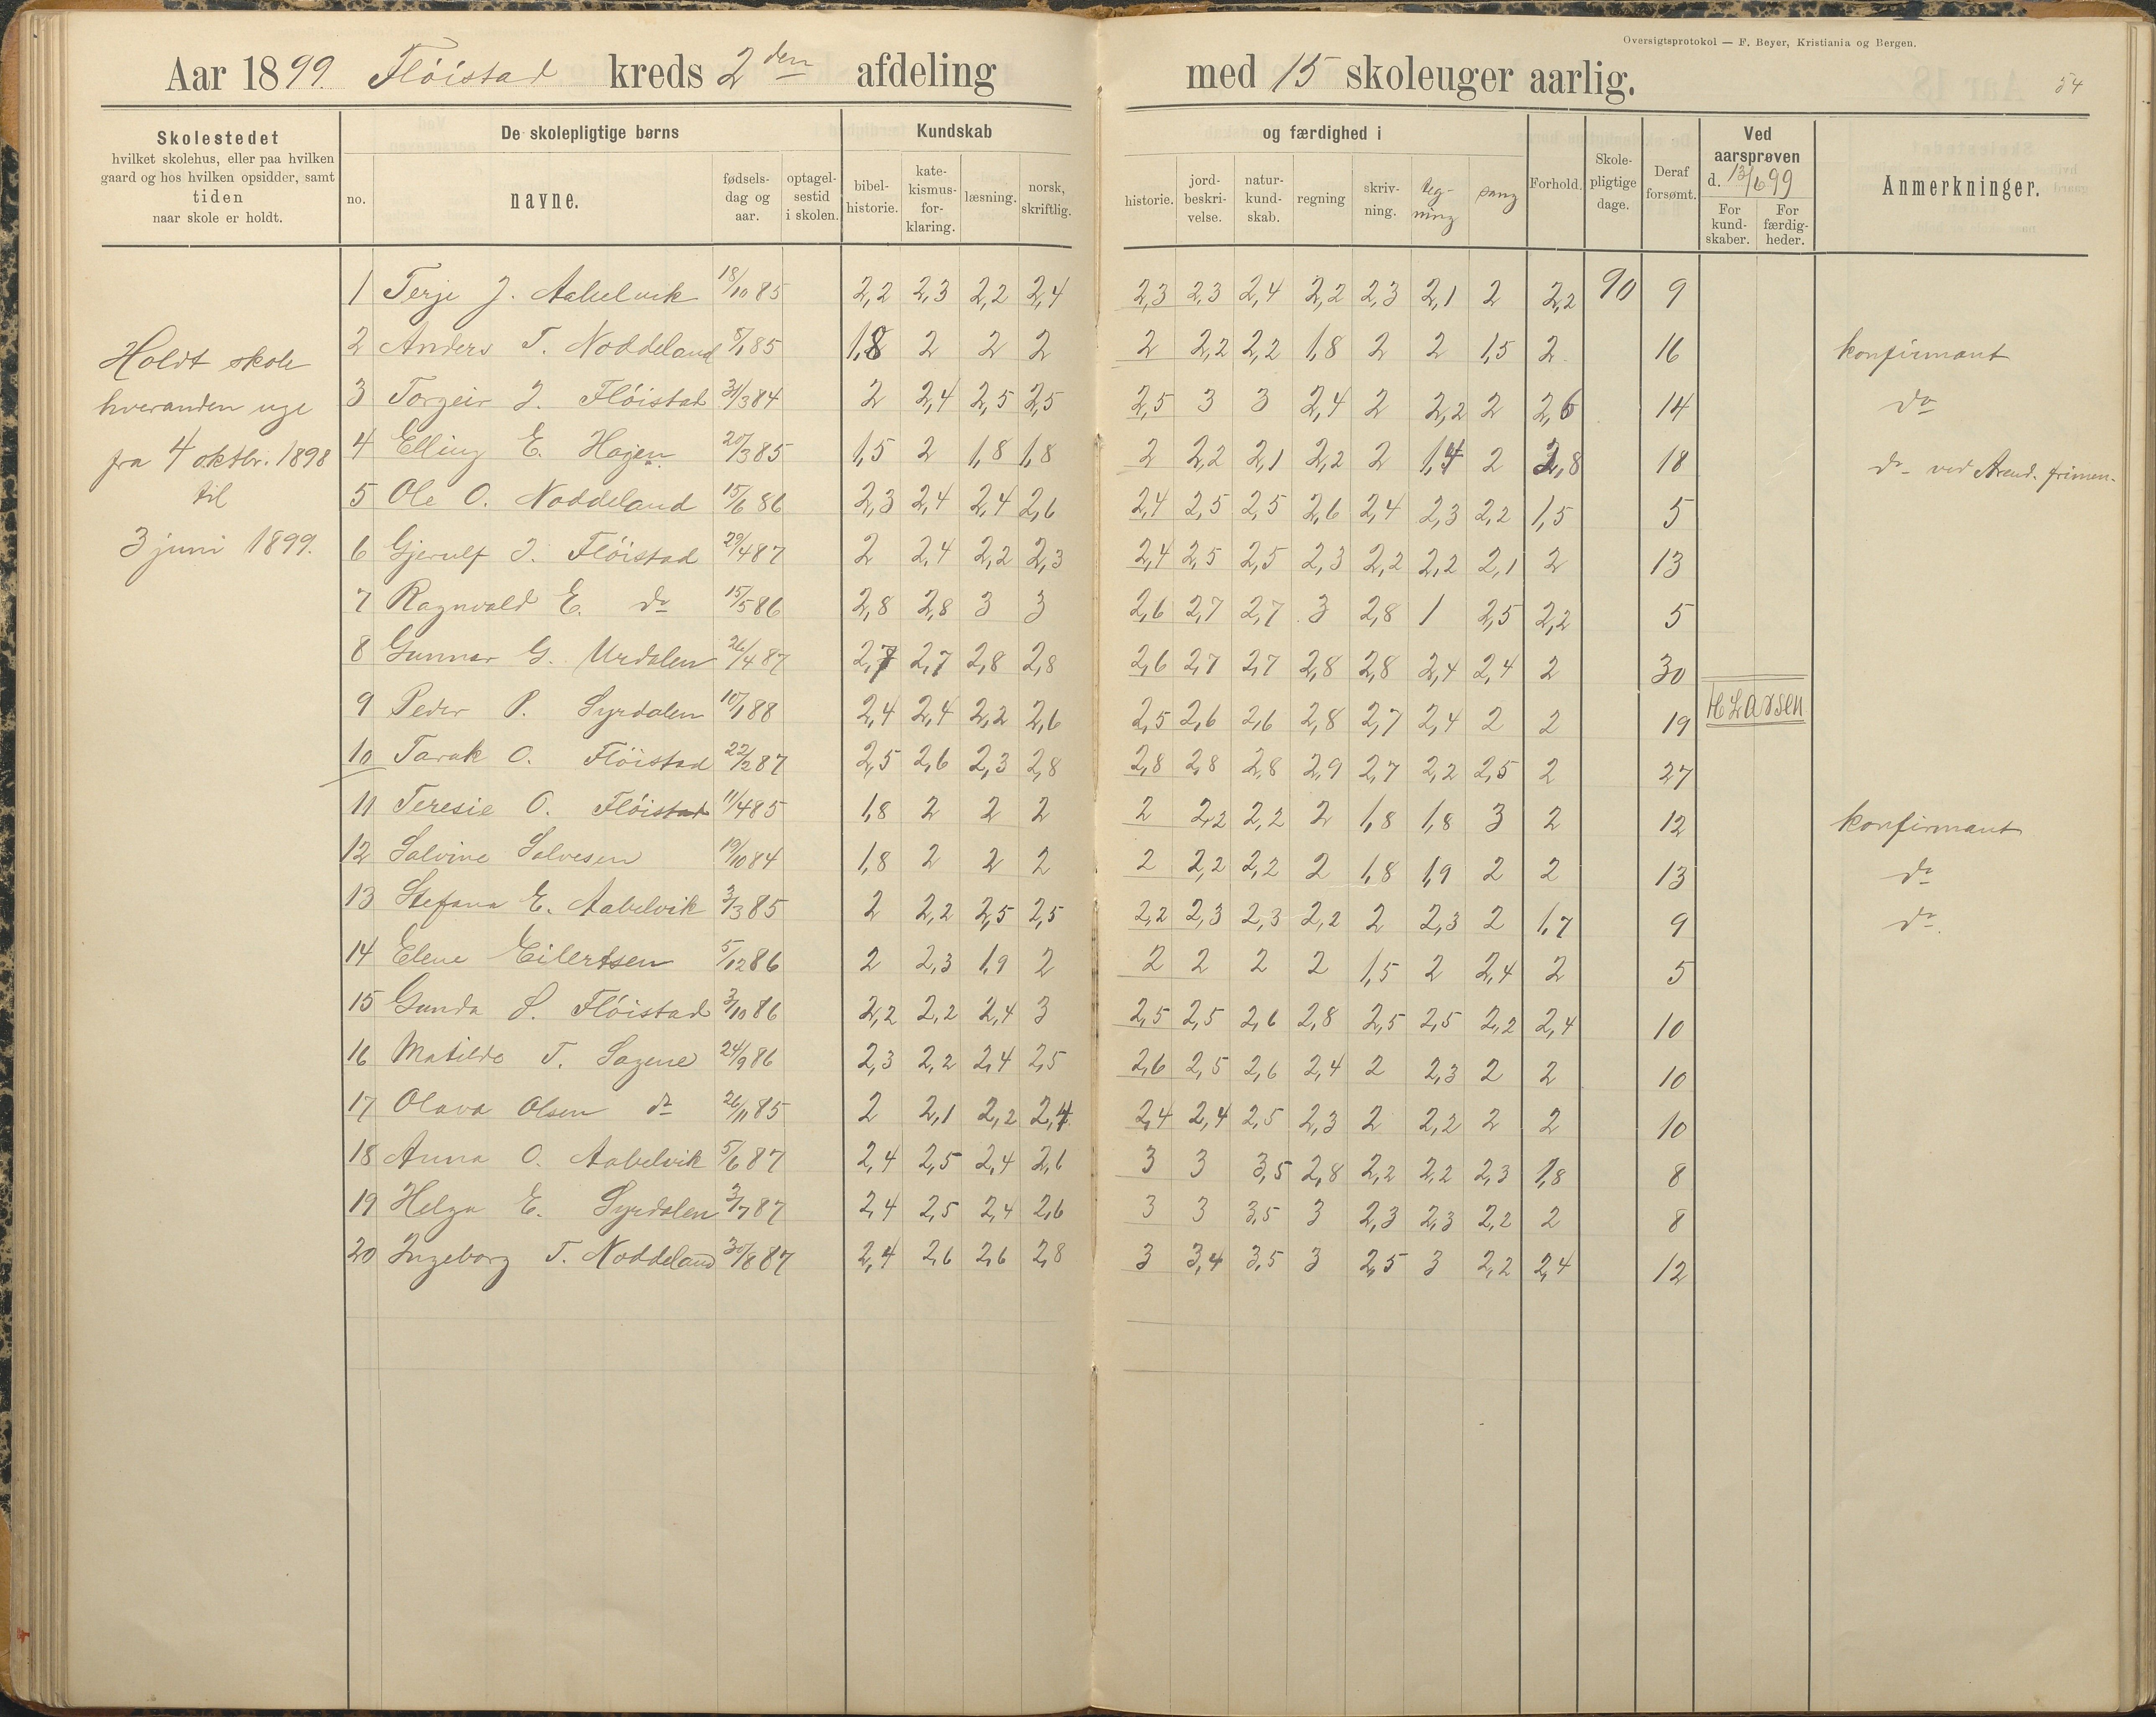 Oversigtsprotokol — F. Beyer, Kristiania og Bergen.
Aar 1899. Flöistad kreds 2den afdeling med 15 skoleuger aarlig. 54
Skolestedet
hvilket skolehus, eller paa hvilken
gaard og hos hvilken opsidder, samt
tiden
naar skole er holdt.
De skolepligtige børns
no.
navne.
fødsels-
dag og
aar.
optagel-
sestid
i skolen.
Kundskab
bibel-
historie.
kate-
kismus-
for-
klaring.
læsning.
norsk,
skriftlig.
og færdighed i
historie.
jord-
beskri-
velse.
natur-
kund-
skab.
regning
skriv-
ning.
teg-
ning
sang
Forhold.
Skole-
pligtige
dage.
Deraf
forsømt.
Ved
aarsprøven
d. 13/6 99
For
kund-
skaber.
For
færdig-
heder.
Anmerkninger.
Holdt skole
hveranden uge
fra 4 oktbr. 1898
til
3 juni 1899.
1 Terje J. Aabelvik 18/10 85 2,2 2,3 2,2 2,4 2,3 2,3 2,4 2,2 2,3 2,1 2 2,2 90 9
2 Anders T. Noddeland 8/1 85 1,8 2 2 2 2 2,2 2,2 1,8 2 2 1,5 2 16 konfirmant
3 Torgeir J. Flöistad 31/3 84 2 2,4 2,5 2,5 2,5 3 3 2,4 2 2,2 2 2,6 14 do
4 Elling E. Hagen 20/3 85 1,5 2 1,8 1,8 2 2,2 2,1 2,2 2 1,4 2 2,8 18 do ved Arend. frimen.
5 Ole O. Noddeland 15/6 86 2,3 2,4 2,4 2,6 2,4 2,5 2,5 2,6 2,4 2,3 2,2 1,5 5
6 Gjerulf J. Flöistad 29/4 87 2 2,4 2,2 2,3 2,4 2,5 2,5 2,3 2,2 2,2 2,1 2 13
7 Ragnvald E. do 15/5 86 2,8 2,8 3 3 2,6 2,7 2,7 3 2,8 1 2,5 2,2 5
8 Gunnar G. Urdalen 26/4 87 2,7 2,7 2,8 2,8 2,6 2,7 2,7 2,8 2,8 2,4 2,4 2 30
9 Peder P. Syrdalen 10/1 88 2,4 2,4 2,2 2,6 2,5 2,6 2,6 2,8 2,7 2,4 2 2 19 H Larsen
10 Tarak O. Flöistad 22/2 87 2,5 2,6 2,3 2,8 2,8 2,8 2,8 2,9 2,7 2,2 2,5 2 27
11 Teresie O. Flöistad 11/4 85 1,8 2 2 2 2 2,2 2,2 2 1,8 1,8 3 2 12 konfirmant
12 Salvine Salvesen 19/10 84 1,8 2 2 2 2 2,2 2,2 2 1,8 1,9 2 2 13 do
13 Stefana E. Aabelvik 3/3 85 2 2,2 2,5 2,5 2,2 2,3 2,3 2,2 2 2,3 2 1,7 9 do.
14 Elene Eilertsen 5/12 86 2 2,3 1,9 2 2 2 2 2 1,5 2 2,4 2 5
15 Gunda S. Flöistad 3/10 86 2,2 2,2 2,4 3 2,5 2,5 2,6 2,8 2,5 2,5 2,2 2,4 10
16 Matilde T. Sagene 24/9 86 2,3 2,2 2,4 2,5 2,6 2,5 2,6 2,4 2 2,3 2 2 10
17 Olava Olsen do 26/11 85 2 2,1 2,2 2,4 2,4 2,4 2,5 2,3 2 2,2 2 2 10
18 Anna O. Aabelvik 5/6 87 2,4 2,5 2,4 2,6 3 3 3,5 2,8 2,2 2,2 2,3 1,8 8
19 Helga E. Syrdalen 3/7 87 2,4 2,5 2,4 2,6 3 3 3,5 3 2,3 2,3 2,2 2 8
20 Ingeborg T. Noddeland 30/8 87 2,4 2,6 2,6 2,8 3 3,4 3,5 3 2,5 3 2,2 2,4 12